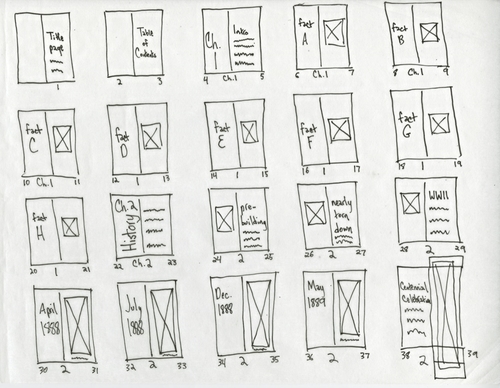 Title
page
1
Table
of
Contents
2 3
Ch.
1
Intro
4 Ch.1 5
fact
A
6 Ch.1 7
fact
B
8 Ch.1 9
fact
C
10 Ch.1 11
fact
D
12 1 13
fact
E
14 1 15
fact
F
16 1 17
fact
G
18 1 19
fact
H
20 1 21
Ch.2
History
22 Ch.2 23
pre-
building
24 2 25
nearly
torn
down
26 2 27
WWII
28 2 29
April
1888
30 2 31
July
1888
32 2 33
Dec.
1888
34 2 35
May
1889
36 2 37
Centennial
Celebration
38 2 39